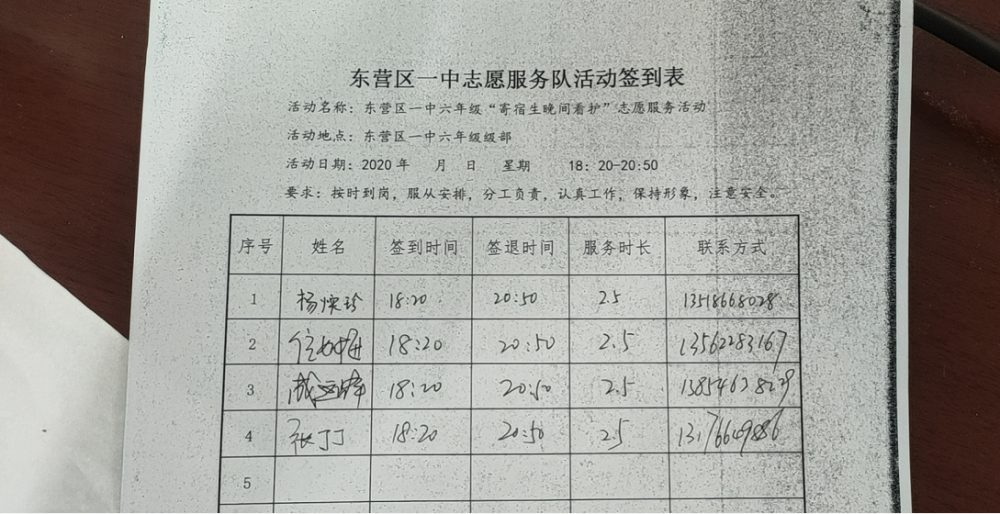 东营区一中志愿服务队活动签到表
活动名称：东营区一中六年级“寄宿生晚间看护”志愿服务活动
活动地点：东营区一中六年级级部
活动日期：2020年 月 日 星期 18：20-20:50
要求：按时到岗，服从安排，分工负责，认真工作，保持形象，注意安全。
序号 姓名 签到时间 签退时间 服务时长 联系方式
1 杨焕珍 18:20 20:50 2.5 13518668028
2 18:20 20:50 2.5 13562283167
3 18:20 20:50 2.5
4 张丁丁 18:20 20:50 2.5 13176649886
5